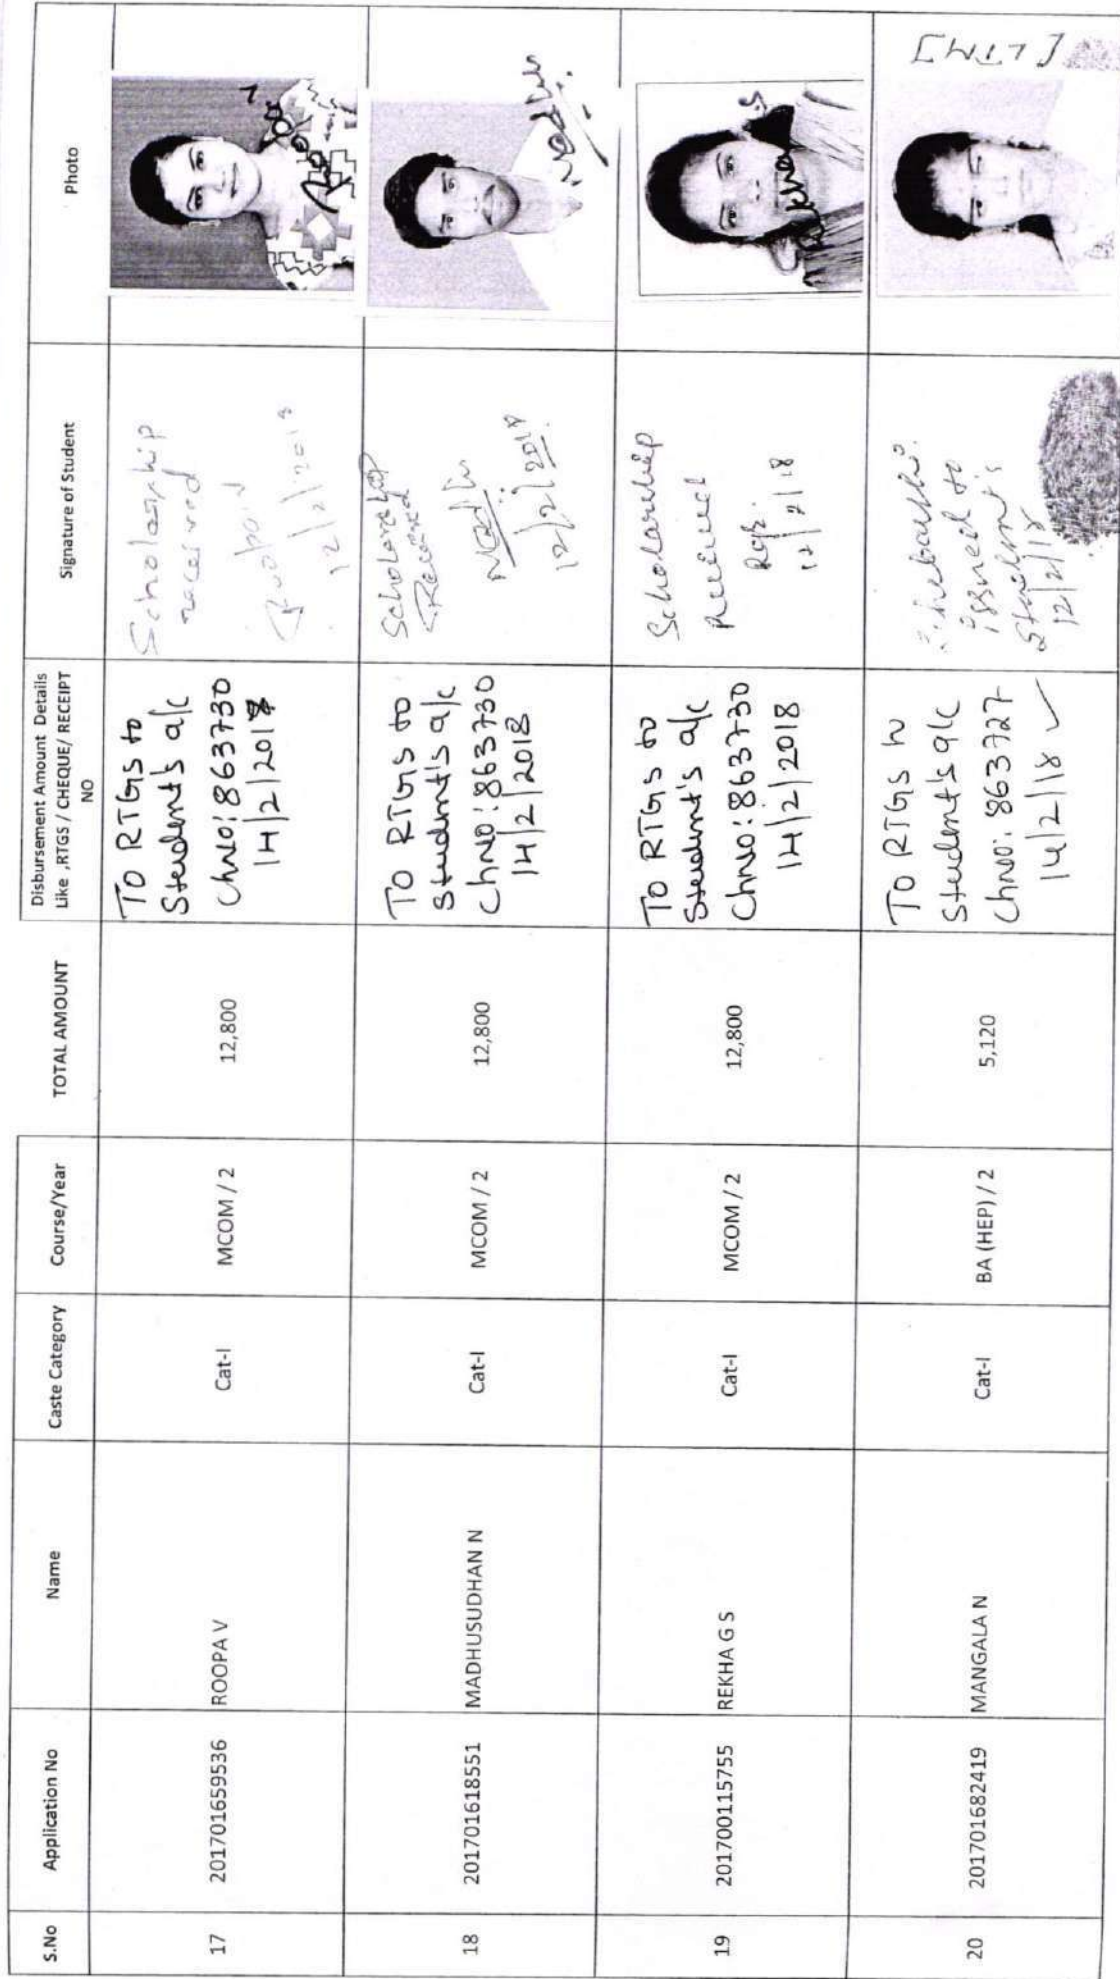 S.No
Application No
Name
Caste Category
Course/Year
TOTAL AMOUNT
Disbursement Amount Details
Like ,RTGS / CHEQUE/ RECEIPT
NO
Signature of Student
Photo
17
201701659536
ROOPA V
Cat-I
MCOM / 2
12,800
TO RTGS to
Student's a/c
Chno: 863730
14/2/2018
Scholarship
received
12/2/2018
18
201701618551
MADHUSUDHAN N
Cat-I
MCOM / 2
12,800
TO RTGS to
Student's a/c
Chno: 863730
14/2/2018
Scholarship
Received
Madhu
12/2/2018
Madhu
19
201700115755
REKHA G S
Cat-I
MCOM / 2
12,800
TO RTGS to
Student's a/c
Chno: 863730
14/2/2018
Scholarship
Received
12/2/18
Rekha G.S
20
201701682419
MANGALA N
Cat-I
BA (HEP) / 2
5,120
TO RTGS to
Student's a/c
Chno: 863727
14/2/18
issued to
12/2/18
[LTM]